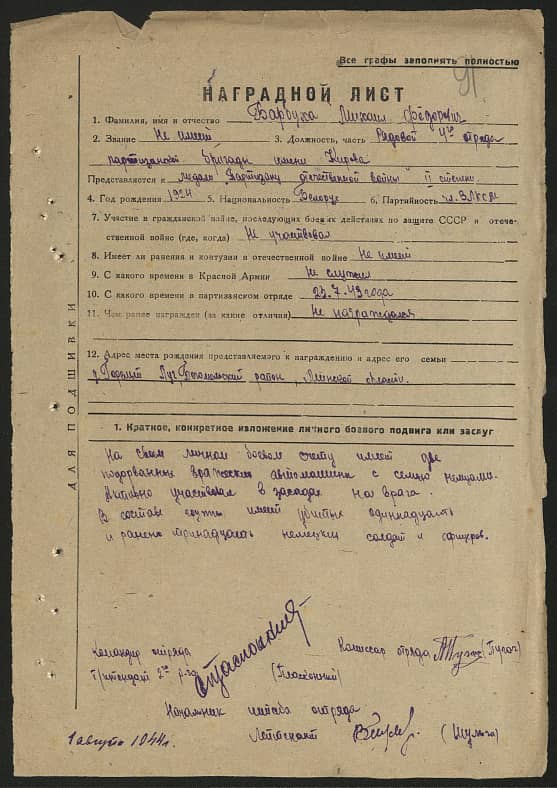 Все графы заполнять полностью
91
НАГРАДНОЙ ЛИСТ
1. Фамилия, имя и отчество Барбуха Михаил Федорович
2. Звание Не имеет 3. Должность, часть Рядовой 4го отряда
партизанской бригады имени Кирова
Представляется к медали Партизану отечественной войны II степени
4. Год рождения 1924 5. Национальность Белорус 6. Партийность чл. ВЛКСМ
7. Участие в гражданской войне, последующих боевых действиях по защите СССР и отече-
ственной войне (где, когда) Не участвовал
8. Имеет ли ранения и контузии в отечественной войне Не имеет
9. С какого времени в Красной Армии Не служил
10. С какого времени в партизанском отряде 23.7.43 года
11. Чем ранее награжден (за какие отличия) Не награждался
12. Адрес места рождения представляемого к награждению и адрес его семьи
д. Луг район, Минской области.
1. Краткое, конкретное изложение личного боевого подвига или заслуг
На своем личном боевом счету имеет две
подорванные вражеские автомашины с семью немцами.
Активно участвовал в засадах на врага.
В составе группы имеет убитых одиннадцать
и ранено тринадцать немецких солдат и офицеров.
Командир отряда
Комиссар отряда (Пугач)
Начальник штаба отряда
Лейтенант (Шульга)
1 августа 1944 г.
ДЛЯ ПОДШИВКИ